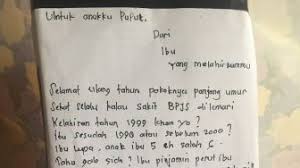 Untuk anakku Puput.
Dari
Ibu
yang melahirkanmu
Selamat ulang tahun pokoknya panjang umur
Sehat selalu kalau sakit BPJS dilemari
Kelahiran tahun 1999 khan yo?
Itu sesudah 1998 atau sebelum 2000?
Ibu lupa, anak ibu 5 eh salah 6
Satu polo sich? Ibu pinjamin perut ibu